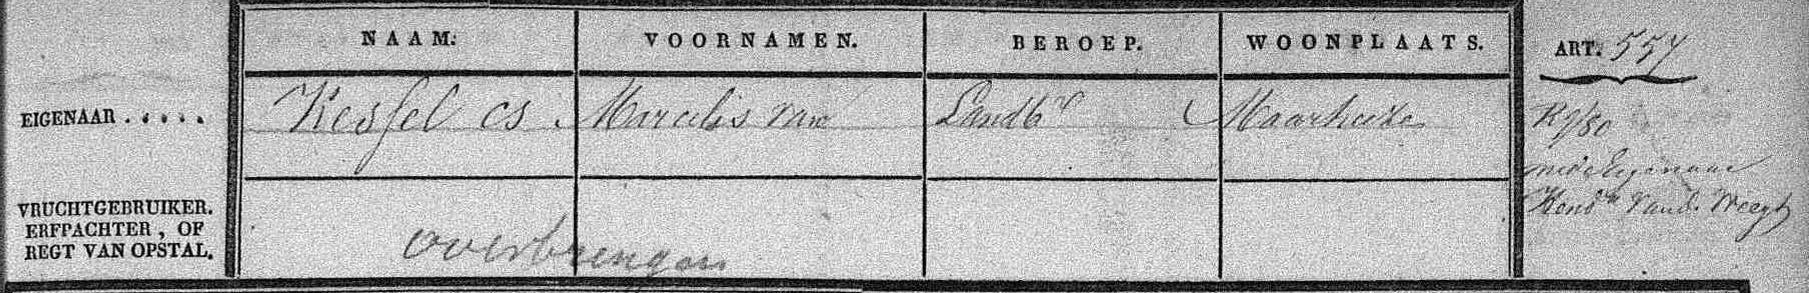 NAAM. VOORNAMEN. BEROEP. WOONPLAATS. ART. 557
EIGENAAR ..... Kessel cs. Marcelis van Landbr Maarheeze
R 9/80
mede Eigenaar
Hendk Vand. Weegh
VRUCHTGEBRUIKER.
ERFPACHTER, OF
REGT VAN OPSTAL.
overbrengen